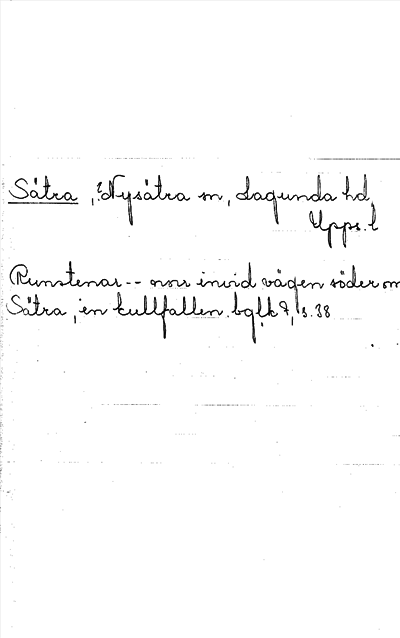 Sätra, Nysätra sn, Lagunda hd,
Upps. l
Runstenar -- norr invid vägen söder om
Sätra, en kullfallen. bglk 7, s. 38